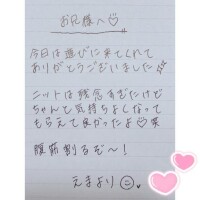 お兄様へ
今日は遊びに来てくれて
ありがとうございました
ニットは残念すぎたけど
ちゃんと気持ちよしなって
もらえて良かったよ笑
腹筋割るぞ〜!
えまより